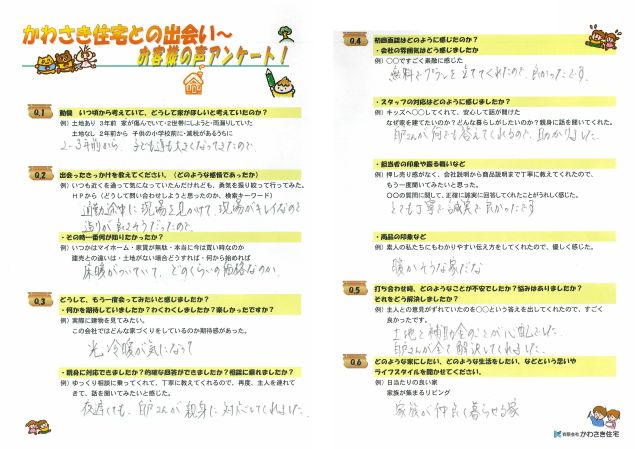 かわさき住宅との出会い～
お客様の声アンケート！
Q.1
動機　いつ頃から考えていて、どうして家が欲しいと考えていたのか？
例）土地あり　3年前　家が傷んでいて・2世帯にしようと・雨漏りしていた
土地なし　2年前から　子供の小学校前に・減税があるうちに
2～3年前から、子ども達も大きくなってきたので、
Q.2
出会ったきっかけを教えてください。（どのような感情であったか）
例）いつも近くを通って気になっていたんだけれども、勇気を振り絞って行ってみた。
HPから（どうして問い合わせしようと思ったのか、検索キーワード）
通勤途中に現場を見かけて、現場がキレイなので
造りが良さそうだったので、
・その時一番何が知りたかったか？
例）いつかはマイホーム・家賃が無駄・本当に今は買い時なのか
建売との違いは・土地がない場合どうすれば・何から始めれば
床暖がついていて、どのくらいの価格なのか、
Q.3
どうして、もう一度会ってみたいと感じましたか？
・何かを期待していましたか？わくわくしましたか？楽しかったですか？
例）実際に建物を見てみたい。
この会社ではどんな家づくりをしているのか期待感があった。
光冷暖が気になって
・親身に対応できましたか？的確な回答ができましたか？相談に乗れましたか？
例）ゆっくり相談に乗ってくれて、丁寧に教えてくれるので、再度、主人を連れて
きて、話を聞いてみたいと感じた。
夜遅くても、師さんが親身に対応してくれました。
Q.4
初回面談はどのように感じたのか？
・会社の雰囲気はどう感じましたか
例）○○ですごく素敵に感じた
無料でプランを立ててくれたので、良かったです。
・スタッフの対応はどのように感じましたか？
例）キッズへ○○してくれて、安心して話が聞けた
なぜ家を建てたいのか？どんな暮らしがしたいのか？親身に話を聞いてくれた。
師さんが何でも答えてくれるので、助かりました。
・担当者の印象や振る舞いなど
例）押し売り感がなく、会社説明から商品説明まで丁寧に教えてくれたので、
もう一度聞いてみたいと思った。
○○の質問に関して、正確に誠実に回答してくれたことがうれしく感じた。
とても丁寧で誠実で良かったです
・商品の印象など
例）素人の私たちにもわかりやすい伝え方をしてくれたので、優しく感じた。
暖かそうな家だな
Q.5
打ち合わせ時、どのようなことが不安でしたか？悩みはありましたか？
それをどう解決しましたか？
例）主人との意見がずれていたのを○○という答えを出してくれたので、すごく
良かったです。
土地と補助金のことが心配でした、
師さんが全て解決してくれました、
Q.6
どのような家にしたい、どのような生活をしたい、などという思いや
ライフスタイルを聞かせてください。
例）日当たりの良い家
家族が集まるリビング
家族が仲良く暮らせる家
有限会社かわさき住宅